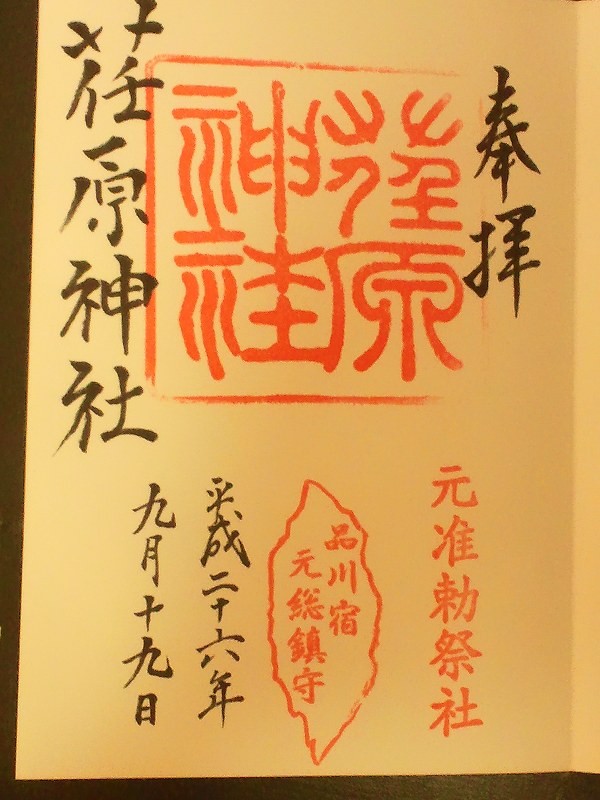 奉拝
元准勅祭社
荏原
神社
品川宿
元総鎮守
平成二十六年
九月十九日
荏原神社